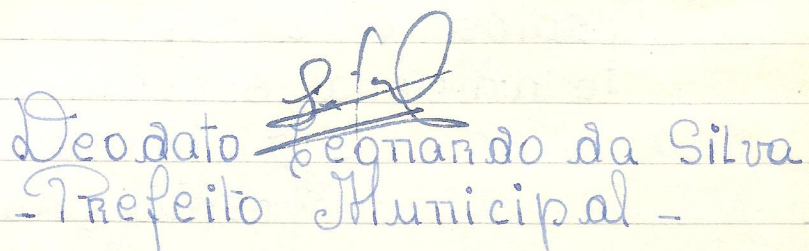 Deodato Legnando da Silva
- Prefeito Municipal -